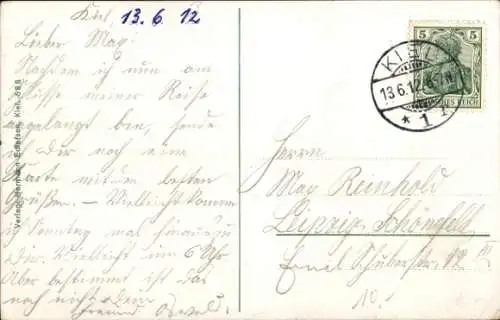 Kiel, 13.6.12
Lieber Max!
Nachdem ich nun am
Schlusse meiner Reise
angelangt bin, sende
ich Dir noch eine
Karte mit den besten
Grüßen. – Vielleicht komme
ich Sonntag mal hinaus zu
Dir. Vielleicht um 6 Uhr
Aber bestimmt ist das
noch nicht. Dein
Freund Oswald.
Verlag: Hermann Kiel.
5 5
KIEL
13.6.12
DEUTSCHES REICH
* 1
Herrn
Max Reinhold
Leipzig-Schönefeld
Schubertstr. 12 III
10.-